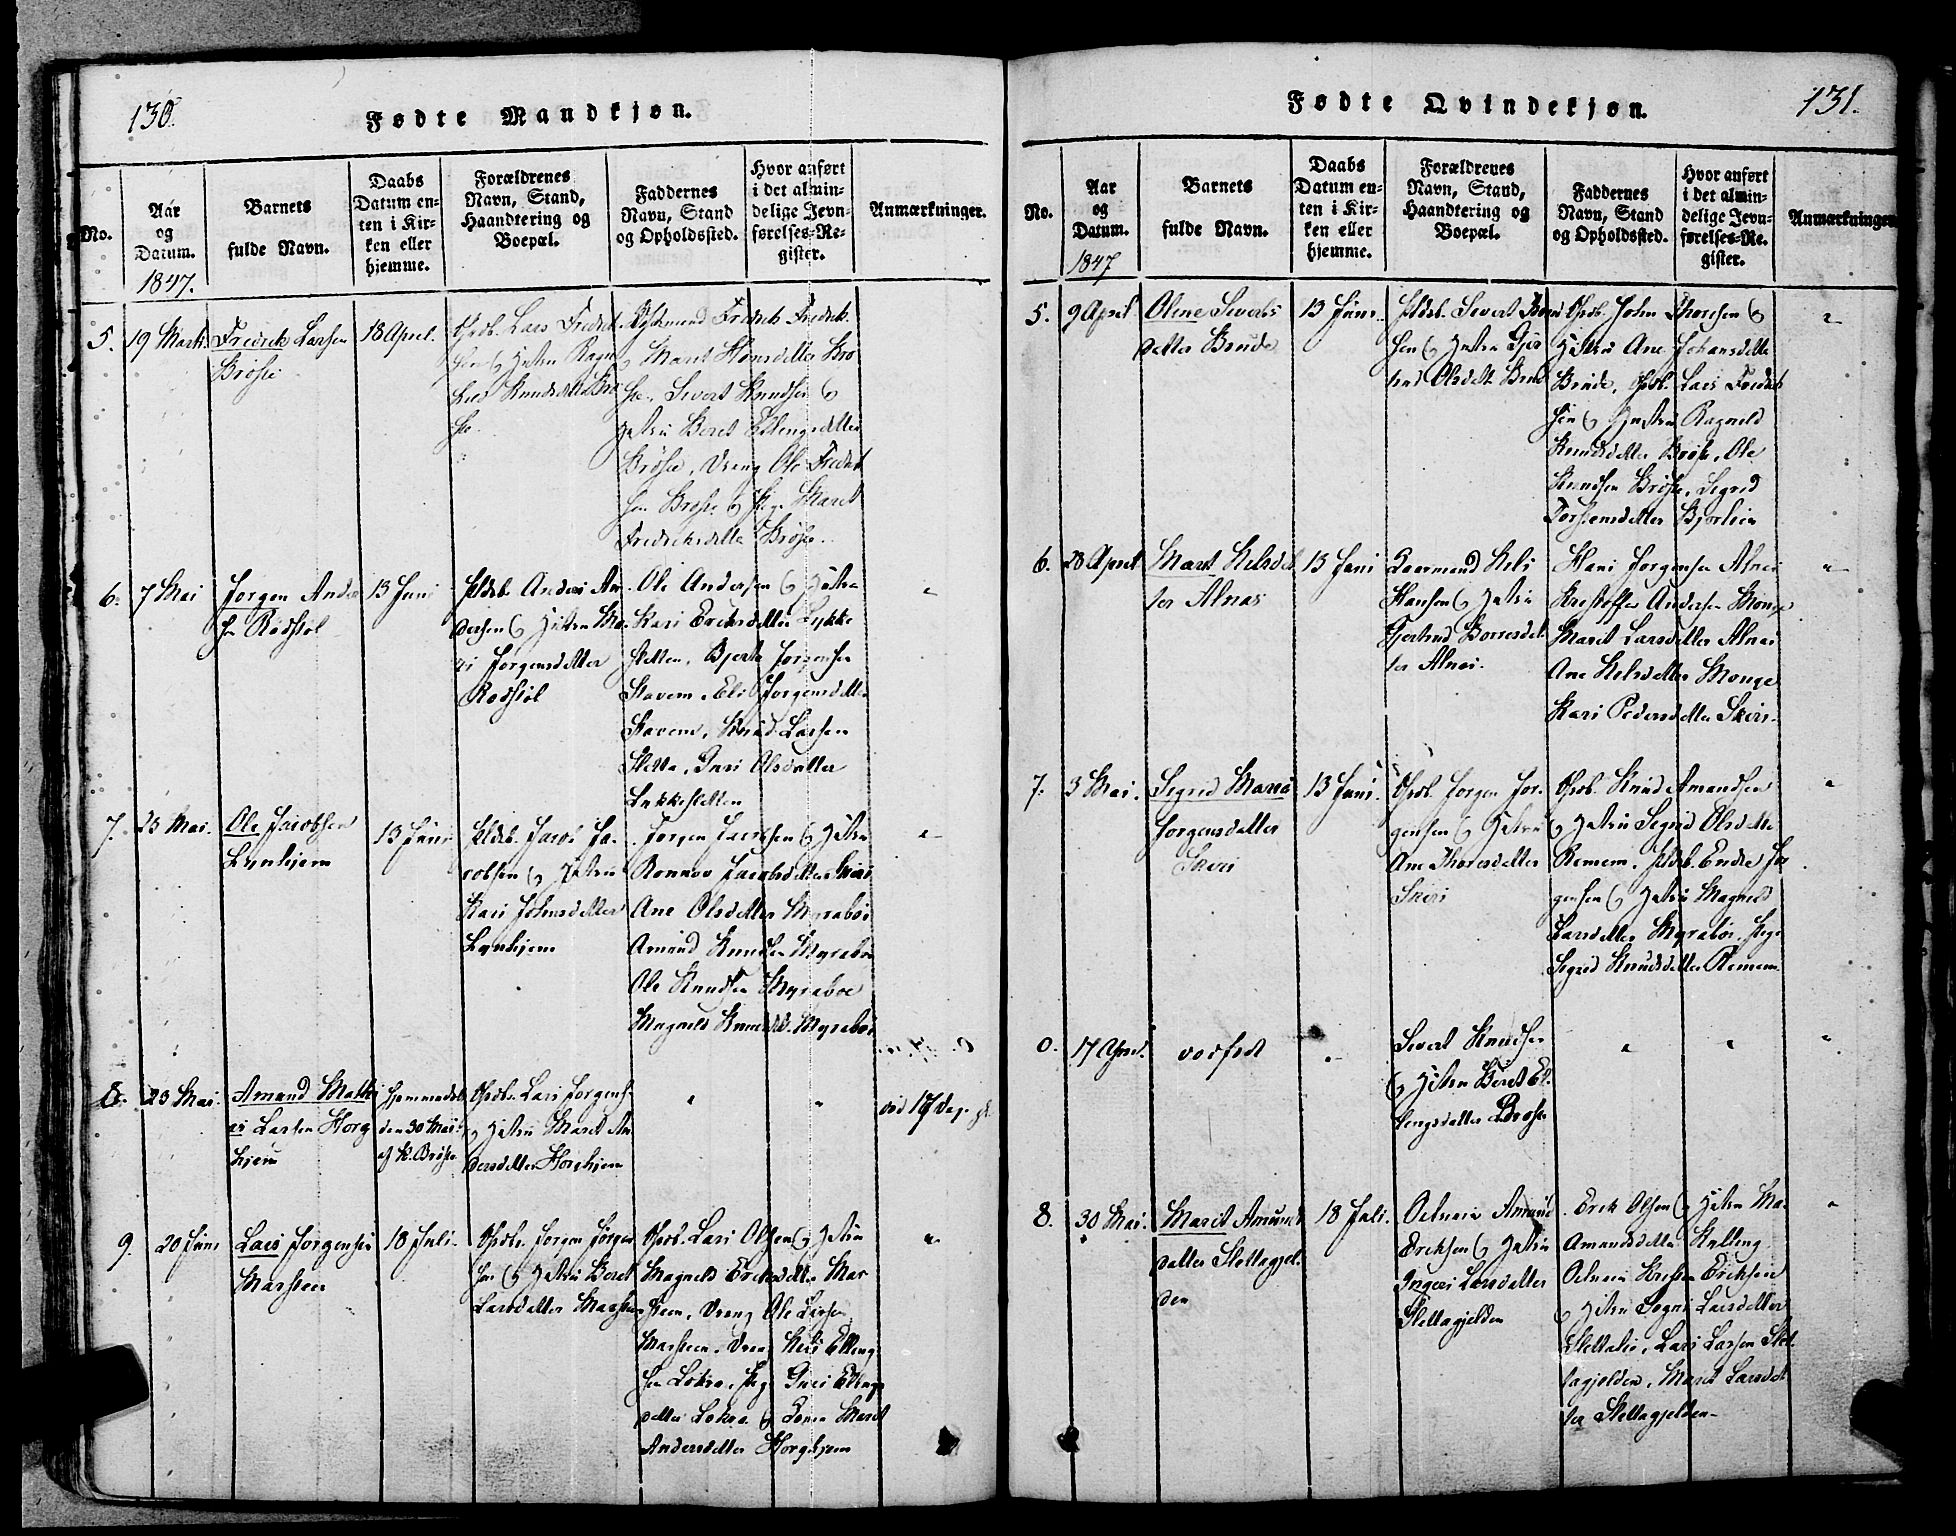 130.
Fødte Mandkjøn.
No.
Aar
og
Datum.
1847.
Barnets
fulde Navn.
Daabs
Datum en-
ten i Kir-
ken eller
hjemme.
Forældrenes
Navn, Stand,
Haandtering og
Boepæl.
Faddernes
Navn, Stand
og Opholdssted.
Hvor anført
i det almin-
delige Jevn-
førelses-Re-
gister.
Anmærkninger.
5.
19 Marts
Fredrik Larsen
Brøste
18 April.
Lars Fredrik
sen & Hustru Ragn
hild Knudsdatter Brø
ste.
Fredrik Fredrik
Marit Hansdatter Brø
ste, Sivert Knudsen &
Hustru Beret Ellingsdatter
Brøste, Dreng Ole Fredrik
sen Brøste & Pige Marit
Fredriksdatter Brøste.
6.
7 Mai
Jørgen Ander
sen Rødstøl
13 Juni
Anders An
dersen & Hustru Ma
ri Jørgensdatter
Rødstøl
Ole Andersen & Hustru
Kari Eriksdatter Lykke
sletten, Bjertе Jørgensen
Stavem, Eli Jørgensdatter
Stavem, Knud Larsen
Sletta, Guri Olsdatter
Lykkesletten
"
7.
23 Mai.
Ole Jacobsen
Lynhjem
13 Juni
Jacob Ja-
cobsen & Hustru
Kari Johnsdatter
Lynhjem
Jørgen Jacobsen & Hustru
Rønnov Jacobsdatter Skiri
Ane Olsdatter Myrabøe
Amund Knudsen Myrabøe
Ole Knudsen Myrabøe
Magnild Knudsdtr. Myrabøe
"
8.
23 Mai.
Amund Mathi
as Larsen Horg
hjem
hjemmedøbt
den 30 Mai
af K. Brøste
Lars Jørgens-
& Hustru Marit An
dersdatter Horghjem
"
"
død 17 Dage gl.
9.
20 Juni
Lars Jørgensen
Marsteen
18 Juli.
Jørgen Jørgen
sen & Hustru Beret
Larsdatter Marsteen
Lars Olsen & Hustru
Magnild Eriksdatter Mar
steen, Dreng Ole Larsen
Marsteen, Dreng Nils Elling
sen Løkra, Pige Guri Ellings
datter Løkra & Marit
Andersdatter Horghjem
"
131.
Fødte Qvindekjøn.
No.
Aar
og
Datum.
1847
Barnets
fulde Navn.
Daabs
Datum en-
ten i Kir-
ken eller
hjemme.
Forældrenes
Navn, Stand,
Haandtering og
Boepæl.
Faddernes
Navn, Stand
og Opholdssted.
Hvor anført
i det almin-
delige Jevn-
førelses-Re-
gister.
Anmærkninger
5.
9 April
Oline Siverts
datter Brude
13 Juni.
Sivert
sen & Hustru Gjer
trud Olsdatter Brude
John Thoresen &
Hustru Ane Johansdatter
Brude, Lars Fredrik
sen & Hustru Ragnild
Knudsdatter Brøste, Ole
Knudsen Brøste, Sigrid
Torstensdatter Bjorliien
"
6.
28 April
Marit Nilsdat
ter Alnæs
13 Juni
Nils
Hansen & Hustru
Gjertrud Børresdat
ter Alnæs.
Hans Jørgensen Alnæs
Kristoffer Andersen Monge
Marit Larsdatter Alnæs
Ane Nilsdatter Monge
Kari Pedersdatter Skiri.
"
7.
3 Mai.
Sigrid Maria
Jørgensdatter
Skiri
13 Juni.
Jørgen Jør-
gensen & Hustru
Ane Thoresdatter
Skiri
Knud Amundsen
& Hustru Sigrid Olsdatter
Remem, Endre Jør
gensen & Hustru Magnild
Larsdatter Myrabøe, Pige
Sigrid Knudsdatter Remem
"
0.
17 April.
dødfødt
"
Sivert Knudsen
& Hustru Beret El-
lingsdatter Brøste
"
"
"
8.
30 Mai.
Marit Amunds
datter Slettagjel
den
18 Juli.
Amund
Eriksen & Hustru
Ingeri Larsdatter
Slettagjelden
Erik Olsen & Hustru Ma
Amundsdatter Kylling
Eriksen
& Hustru Larsdatter
Lars Larsen Slet
tagjelden, Marit Larsdat
ter Slettagjelden
"